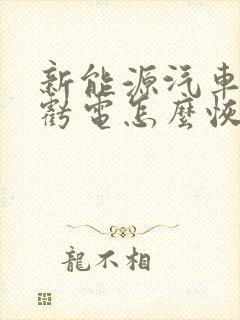 新能源汽車
虧電怎麼恢
龍不相